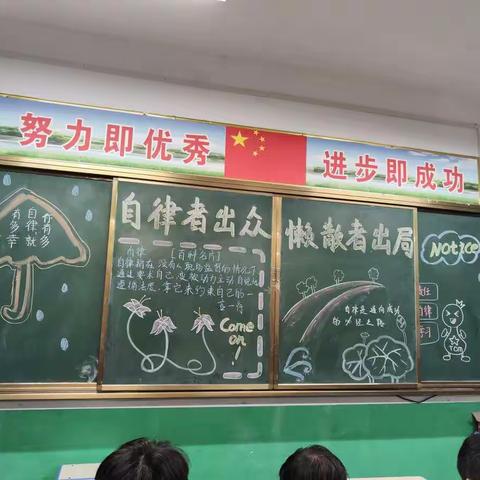 努力即优秀
进步即成功
有自你
多律有
幸就多
自律者出众
自律 【百科名片】
自律指在没有人现场监督的情况下
通过要求自己,变被动为主动,自觉地
遵循法度,拿它来约束自己的一
言一行
Come
on!
懒散者出局
自律是通向成功
的必经之路
Notice
责任
自律
学习